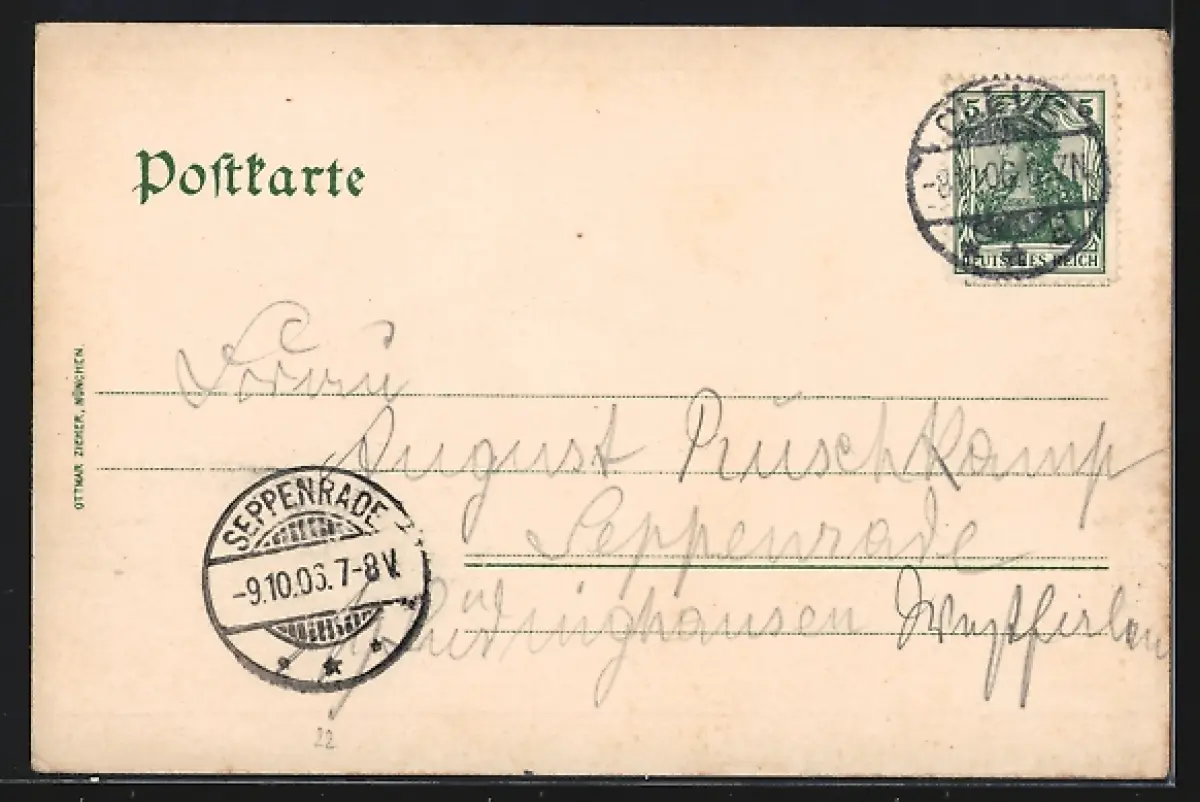 Postkarte
5 5
CLEVE
-8.10.06. 6-7N.
DEUTSCHES REICH
OTTMAR ZIEHER, MÜNCHEN.
Frau
August Prüschkamp
Seppenrade
b/ Lüdinghausen Westfalen
SEPPENRADE
-9.10.06. 7-8V.
22